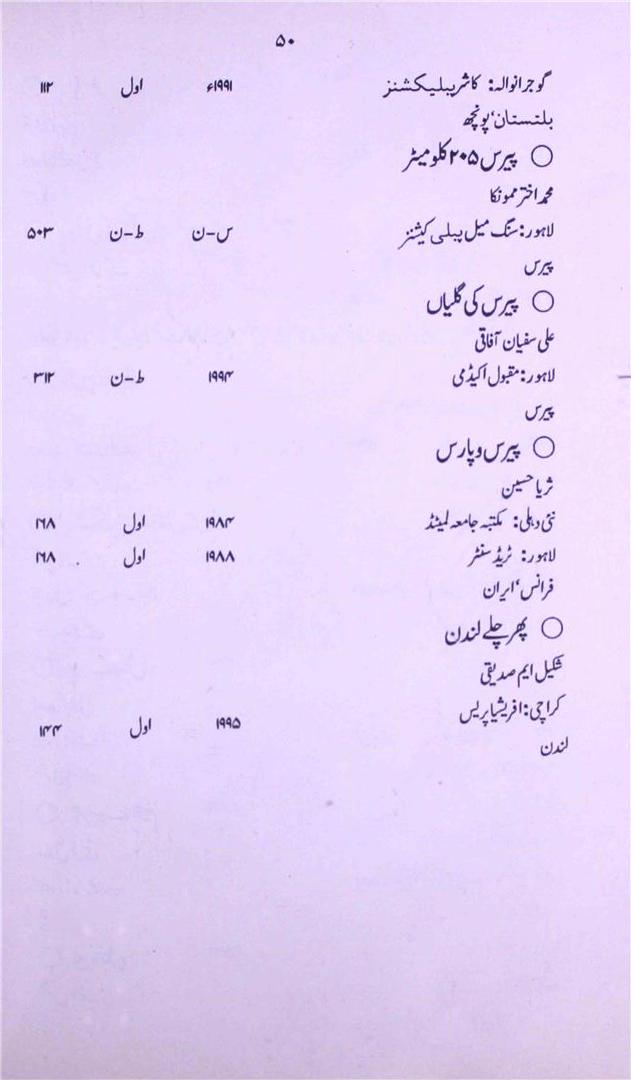 ۵۰
گوجرانوالہ: کاشر پبلیکشنز ۱۹۹۱ء اول ۱۱۲
بلتستان، پونچھ
○ پیرس ۲۰۵ کلومیٹر
محمد اختر ممونکا
لاہور: سنگ میل پبلی کیشنز س-ن ط-ن ۵۰۳
پیرس
○ پیرس کی گلیاں
علی سفیان آفاقی
لاہور: مقبول اکیڈمی ۱۹۹۴ ط-ن ۳۱۲
پیرس
○ پیرس و پارس
ثریا حسین
نئی دہلی: مکتبہ جامعہ لمیٹڈ ۱۹۸۴ اول ۲۶۸
لاہور: ٹریڈ سنٹر ۱۹۸۸ اول ۲۶۸
فرانس، ایران
○ پھر چلے لندن
شکیل ایم صدیقی
کراچی: افریشیا پریس ۱۹۹۵ اول ۱۴۴
لندن